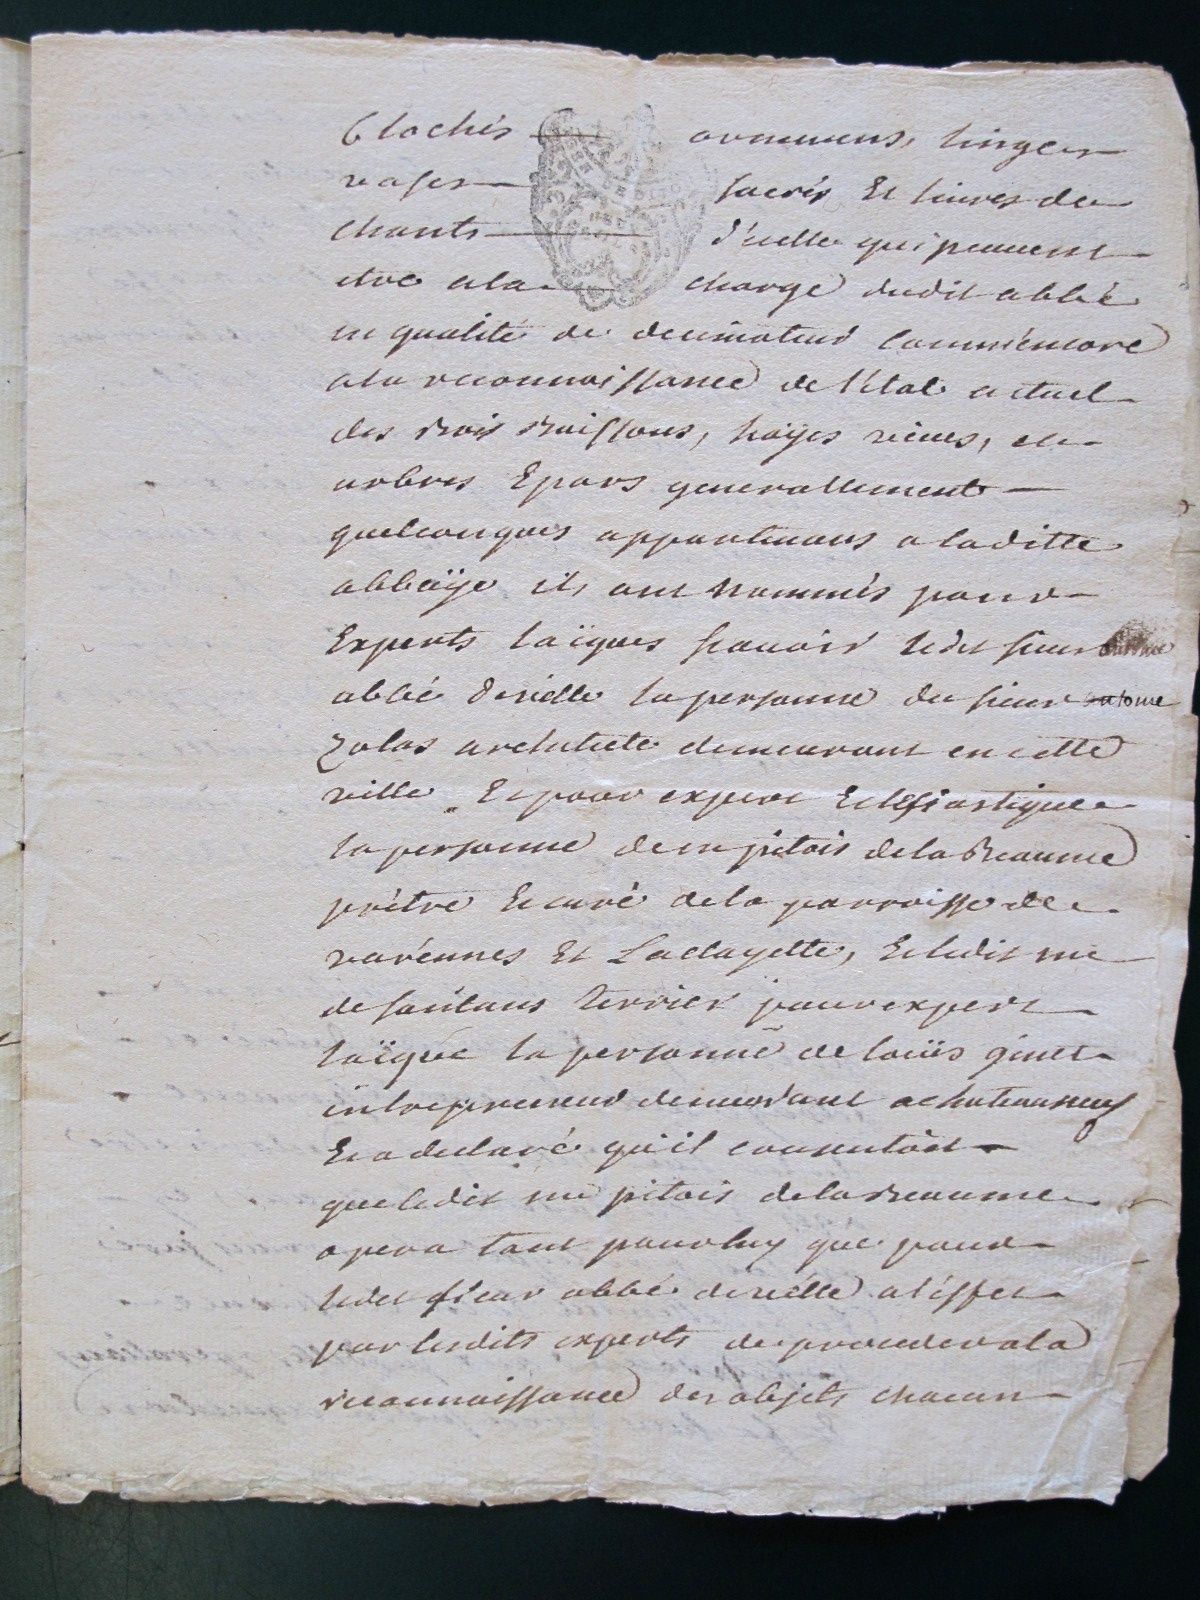 Clochés ornemens, linges
vases sacrés Et livres de
chants d'icelle qui peuvent
etre a la charge dudit abbé
en qualité de decimateur comm'encore
a la reconnoissance de l'état actuel
des bois buissons, hayes vives, et
arbres Epars generallement
quelconques appartenans a laditte
abbaÿe ils ont nommés pour
Experts laïques scavoir ledit sieur
abbé la personne du sieur antoine
Zolas architecte demeurant en cette
ville Et pour expert Eclesiastique
la personne de me pitois de la Beaume
prêtre Et curé de la parroisse de
varénnes Et Laclayette, Et ledit me
terrier pour expert
laïque la personne de louïs ginet
entrepreneur demeurant a chateauneuf
Et a declaré qu'il consentoit
que ledit me pitois de la Beaume
opera tant pour luy que pour
ledit sieur abbé a l'effet
par lesdits experts de proceder a la
reconnoissance des objets chacun